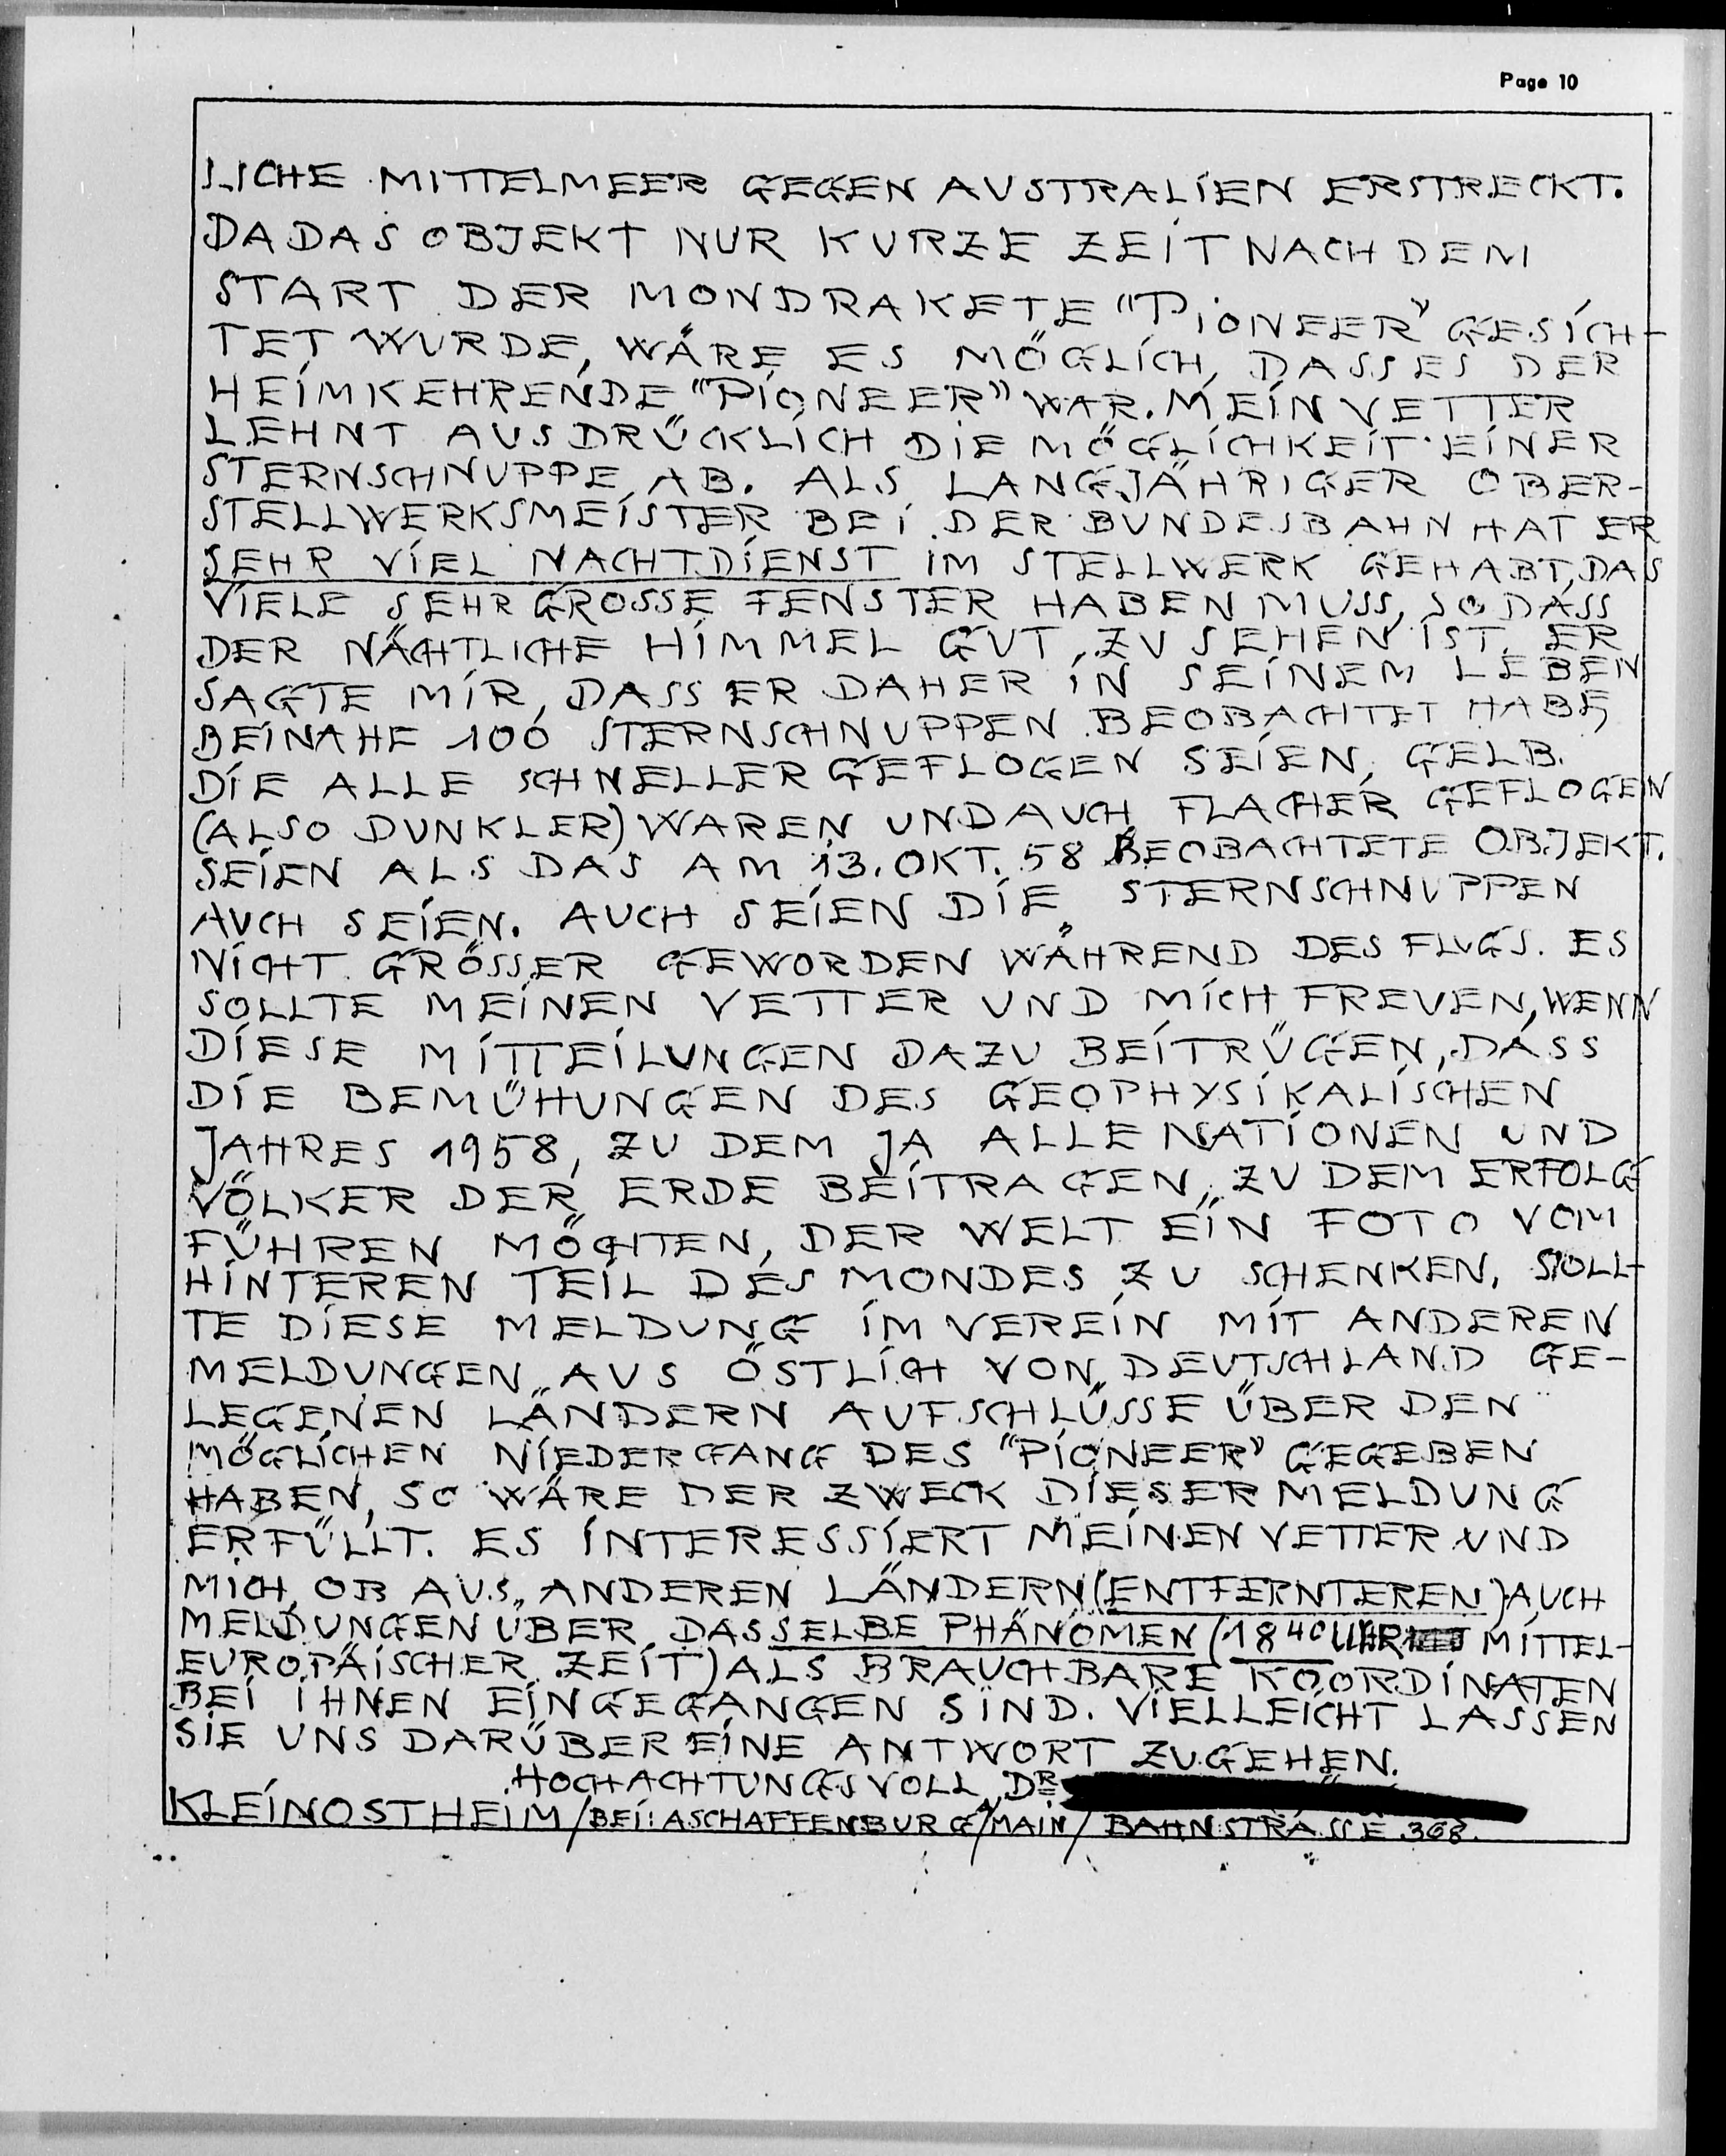 Page 10
LICHE MITTELMEER GEGEN AUSTRALIEN ERSTRECKT.
DA DAS OBJEKT NUR KURZE ZEIT NACH DEM
START DER MONDRAKETE "PIONEER" GESICH-
TET WURDE, WÄRE ES MÖGLICH, DASS ES DER
HEIMKEHRENDE "PIONEER" WAR. MEIN VETTER
LEHNT AUSDRÜCKLICH DIE MÖGLICHKEIT EINER
STERNSCHNUPPE AB. ALS LANGJÄHRIGER OBER-
STELLWERKSMEISTER BEI DER BUNDESBAHN HAT ER
SEHR VIEL NACHTDIENST IM STELLWERK GEHABT, DAS
VIELE SEHR GROSSE FENSTER HABEN MUSS, SODASS
DER NÄCHTLICHE HIMMEL GUT ZU SEHEN IST. ER
SAGTE MIR, DASS ER DAHER IN SEINEM LEBEN
BEINAHE 100 STERNSCHNUPPEN BEOBACHTET HABE,
DIE ALLE SCHNELLER GEFLOGEN SEIEN, GELB.
(ALSO DUNKLER) WAREN UND AUCH FLACHER GEFLOGEN
SEIEN ALS DAS AM 13. OKT. 58 BEOBACHTETE OBJEKT.
AUCH SEIEN. AUCH SEIEN DIE STERNSCHNUPPEN
NICHT GRÖSSER GEWORDEN WÄHREND DES FLUGS. ES
SOLLTE MEINEN VETTER UND MICH FREUEN, WENN
DIESE MITTEILUNGEN DAZU BEITRÜGEN, DASS
DIE BEMÜHUNGEN DES GEOPHYSIKALISCHEN
JAHRES 1958, ZU DEM JA ALLE NATIONEN UND
VÖLKER DER ERDE BEITRAGEN, ZU DEM ERFOLG
FÜHREN MÖCHTEN, DER WELT EIN FOTO VOM
HINTEREN TEIL DES MONDES ZU SCHENKEN. SOLL-
TE DIESE MELDUNG IM VEREIN MIT ANDEREN
MELDUNGEN AUS ÖSTLICH VON DEUTSCHLAND GE-
LEGENEN LÄNDERN AUFSCHLÜSSE ÜBER DEN
MÖGLICHEN NIEDERGANG DES "PIONEER" GEGEBEN
HABEN, SO WÄRE DER ZWECK DIESER MELDUNG
ERFÜLLT. ES INTERESSIERT MEINEN VETTER UND
MICH, OB AUS ANDEREN LÄNDERN (ENTFERNTEREN) AUCH
MELDUNGEN ÜBER DASSELBE PHÄNOMEN (18 40 UHR MITTEL-
EUROPÄISCHER ZEIT) ALS BRAUCHBARE KOORDINATEN
BEI IHNEN EINGEGANGEN SIND. VIELLEICHT LASSEN
SIE UNS DARÜBER EINE ANTWORT ZUGEHEN.
HOCHACHTUNGSVOLL, DR.
KLEINOSTHEIM / BEI: ASCHAFFENBURG/MAIN / BAHNSTRASSE 368.